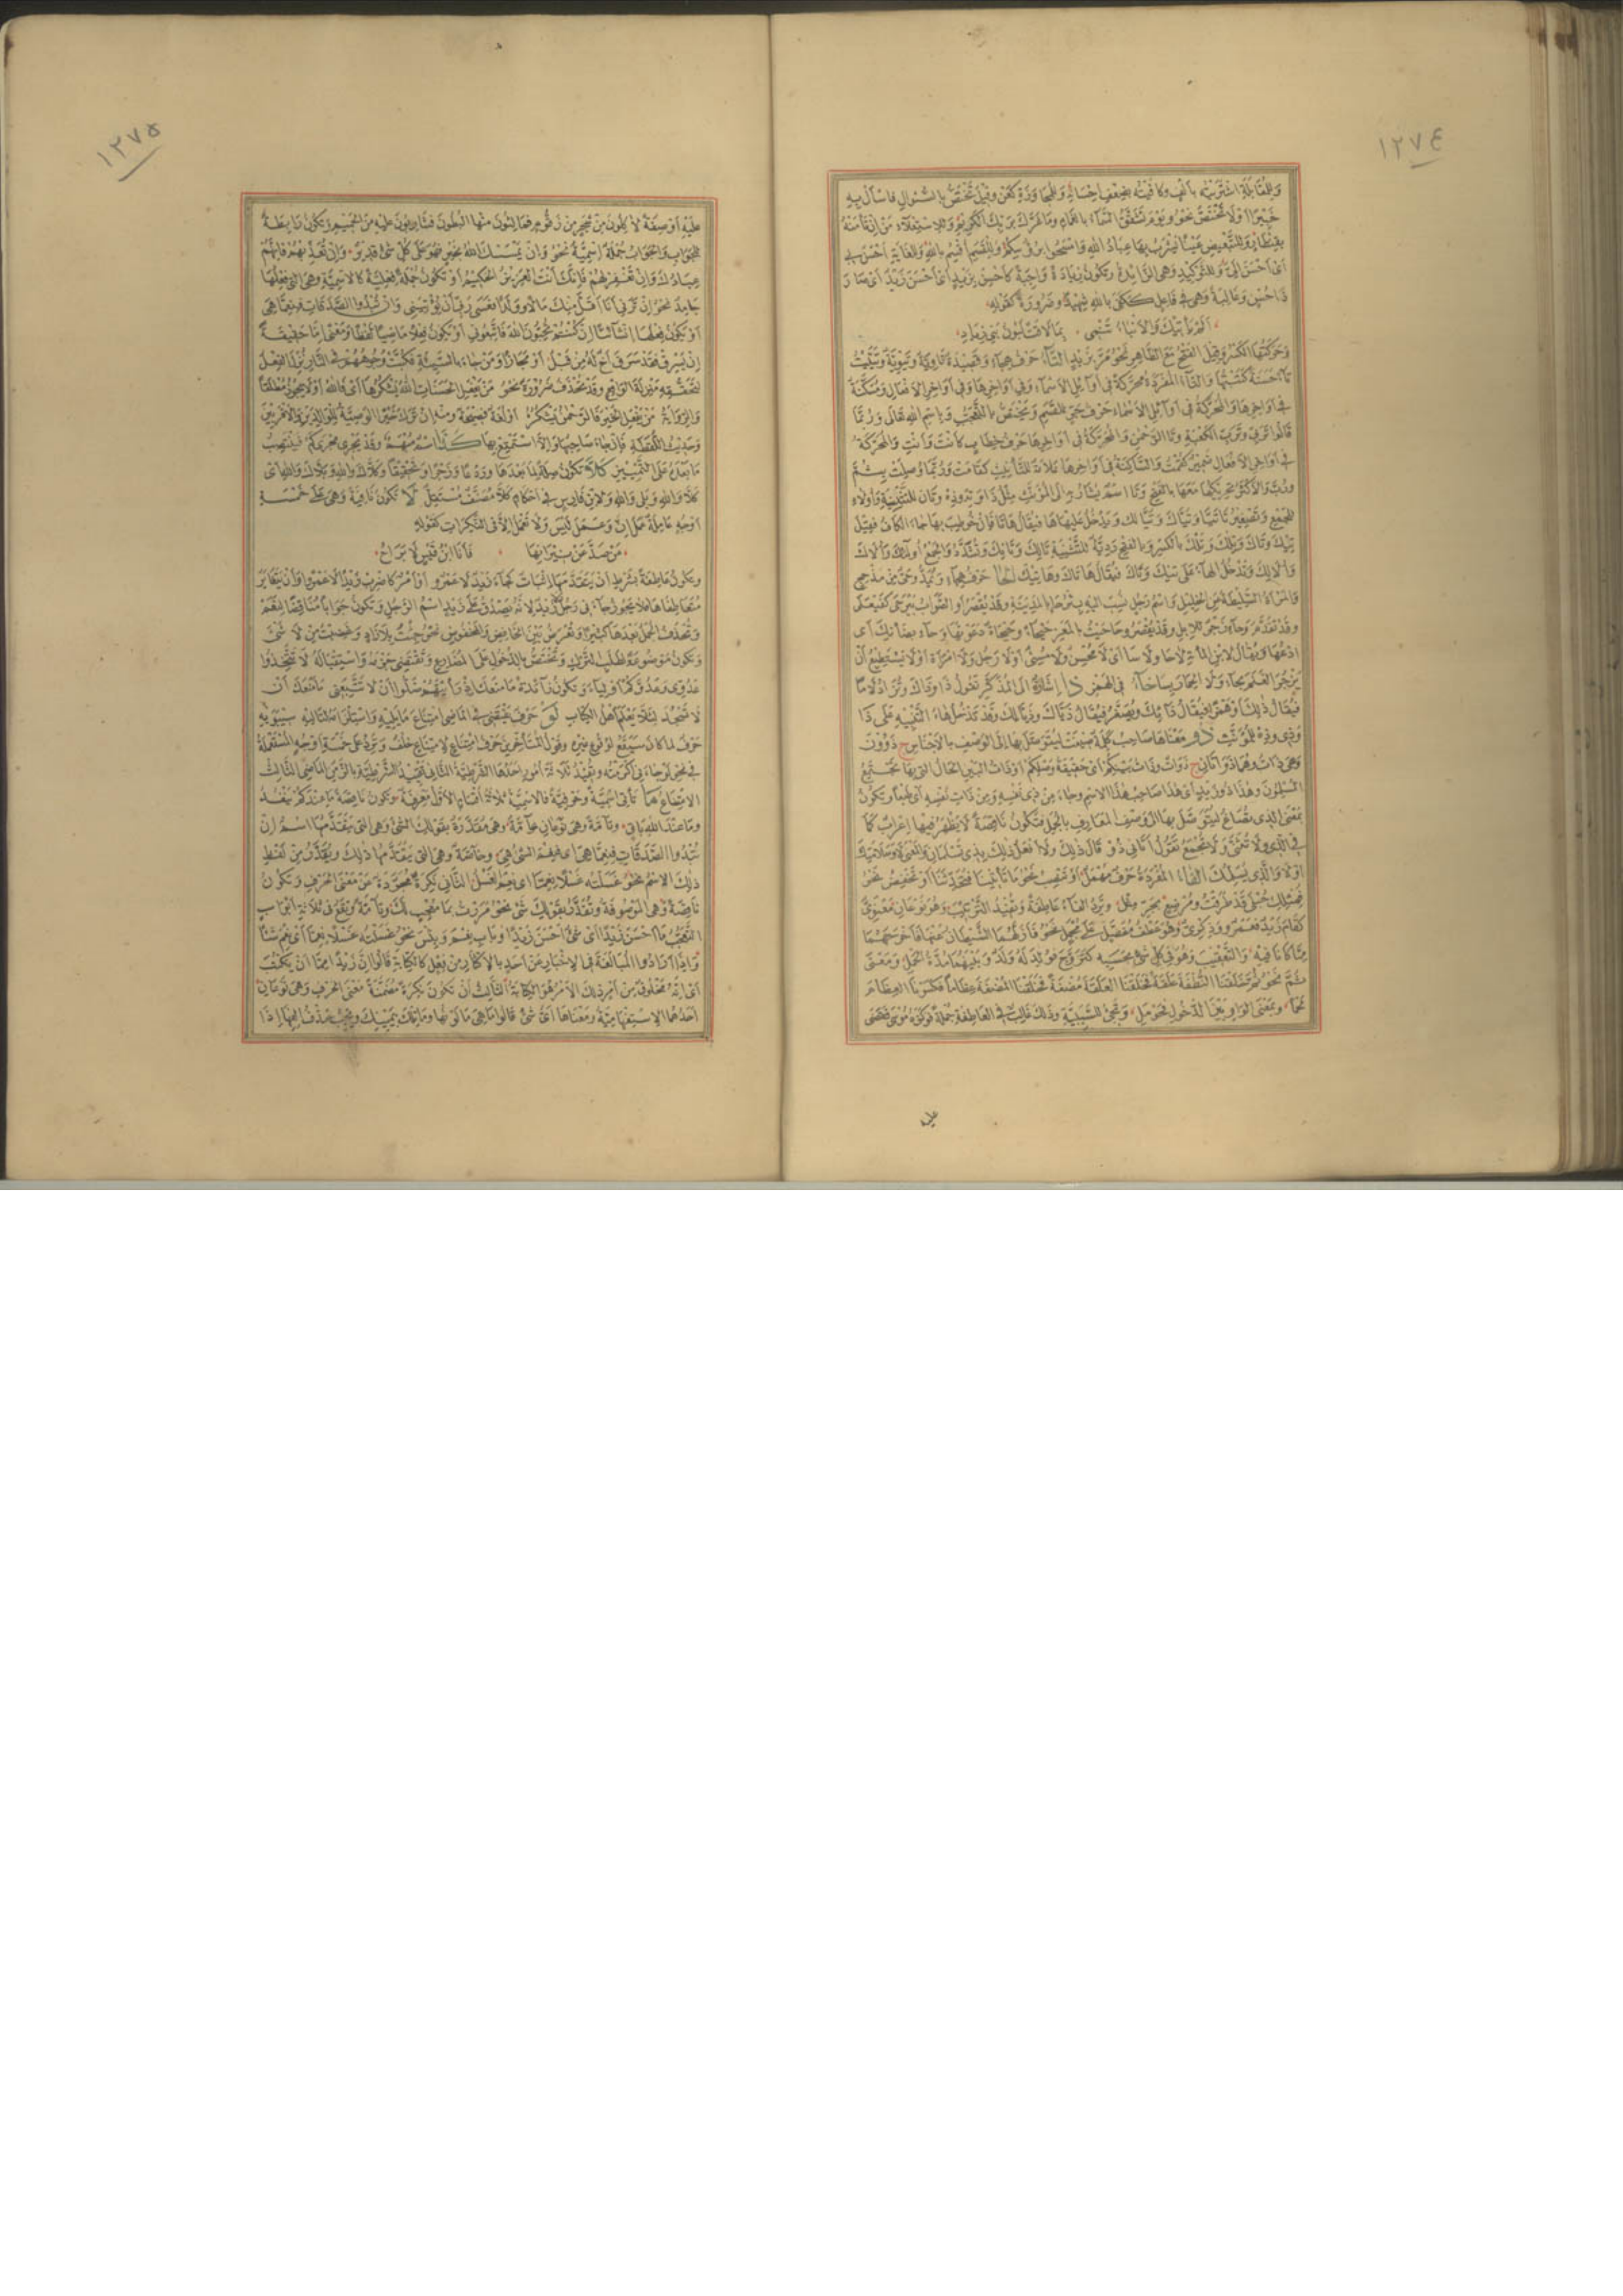 ١٢٧٤
وللمقابلة اشتريته بألف وكافيته بضعف احسانه وللمجاوزة كعن وقيل تختص بالسؤال فاسأل به
خبيرا أو لا تختص نحو ويوم تشقق السماء بالغمام وما غرك بربك الكريم وللاستعلاء من إن تأمنه
بقنطار وللتبعيض عينا يشرب بها عباد الله وامسحوا برؤسكم وللقسم أقسم بالله وللغاية أحسن بي
أي أحسن الي وللتوكيد وهي الزائدة وتكون زيادة واجبة كأحسن بزيد أي أحسن زيد أي صار
ذا حسن وغالبة وهي في فاعل كفى كفى بالله شهيدا وضرورة كقوله
ألم يأتيك والأنباء تنمي بما لاقت لبون بني زياد
وحركتها الكسر وقيل الفتح مع الظاهر نحو مر بزيد التاء حرف هجاء وقصيدة تاوية وتيوية وتييت
تاء حسنة كتبتها والتاء المفردة محركة في أوائل الأسماء وفي أواخرها وفي أواخر الأفعال ومسكنة
في أواخرها والمحركة في أوائل الأسماء حرف جر للقسم وتختص بالتعجب وباسم الله تعالى وربما
قالوا تربي وترب الكعبة وتالرحمن والمحركة في أواخرها حرف خطاب كأنت وأنت والمحركة
في أواخر الأفعال ضمير كقمت والساكنة في أواخرها علامة للتأنيث كقامت وربما وصلت بثم
ورب والأكثر تحريكها معها بالفتح وتا اسم يشار به الى المؤنث مثل ذا وته وذه وتان للتثنية وأولاء
للجمع وتصغير تاتيا وتياك وتيالك وتدخل عليها ها فيقال هاتا فان خوطب بها جاء الكاف فقيل
تيك وتاك وتلك وتلك بالكسر وبالفتح ردية للتثنية تانك وتانك وتشدد والجمع أولئك وأولاك
وأولالك وتدخل الهاء على تيك وتاك فيقال هاتاك وهاتيك الحاء حرف هجاء ويمد وحي من مذحج
والمرأة السليطة عن الخليل واسم رجل نسب اليه بئر حاء بالمدينة وقد يقصر أو الصواب بيرحى كفيعلى
وقد تقدم وحاء زجر للابل وقد يقصر وحاحيت بالمعز حيحاء وحيحاءة دعوتها وحاء بضأنك أي
ادعها ويقال لابن المائة لا حاء ولا ساء أي لا محسن ولا مسئ أو لا رجل ولا امرأة أو لا يستطيع أن
يزجر الغنم بحاء ولا الحمار بساء خاء في الهمز ذا إشارة الى المذكر تقول ذا وذاك وتزاد لاما
فيقال ذلك أو همز فيقال ذائك ويصغر فيقال ذياك وذيالك وقد تدخل هاء التنبيه على ذا
وذي وذه للمؤنث ذو معناها صاحب كلمة صيغت ليتوصل بها الى الوصف بالاجناس ج ذوون
وهي ذات وهما ذواتان ج ذوات وذات بينكم أي حقيقة وصلكم أو ذات البين الحال التي بها يجتمع
المسلمون وهذا ذو زيد أي هذا صاحب هذا الاسم وجاء من ذي نفسه ومن ذات نفسه أي طبعا وتكون
بمعنى الذي تصاغ ليتوصل بها الى وصف المعارف بالجمل فتكون ناقصة لا يظهر فيها إعراب كما
في الذي ولا تثنى ولا تجمع تقول أتاني ذو قال ذلك ولا أفعل ذلك بذي تسلم
الفاء المفردة حرف مهمل أو تنصب نحو ما تأتينا فتحدثنا أو تخفض نحو
فمثلك حبلى قد طرقت ومرضع بجر مثل وترد الفاء عاطفة وتفيد الترتيب وهو نوعان معنوي
كقام زيد فعمرو وذكري وهو عطف مفصل على مجمل نحو فأزلهما الشيطان عنها فأخرجهما
مما كانا فيه والتعقيب وهو في كل شيء بحسبه كتزوج فولد له ولد وبينهما مدة الحمل وبمعنى
ثم نحو ثم خلقنا النطفة علقة فخلقنا العلقة مضغة فخلقنا المضغة عظاما فكسونا العظام
لحما وبمعنى الواو بين الدخول فحومل وتجئ للسببية وذلك غالب في العاطفة جملة فوكزه موسى فقضى
١٢٧٥
عليه أو صفة لآكلون من شجر من زقوم فمالئون منها البطون فشاربون عليه من الحميم وتكون رابطة
للجواب والجواب جملة اسمية نحو وان يمسسك الله بخير فهو على كل شئ قدير وإن تعذبهم فانهم
عبادك وان تغفر لهم فانك أنت العزيز الحكيم أو تكون جملة فعلية كالاسمية وهي التي فعلها
جامد نحو ان ترني أنا أقل منك مالا وولدا فعسى ربي أن يؤتيني وان تبدوا الصدقات فنعما هي
أو يكون فعلها انشائيا ان كنتم تحبون الله فاتبعوني أو يكون فعلا ماضيا لفظا ومعنى إما حقيقة
إن يسرق فقد سرق أخ له من قبل أو مجازا ومن جاء بالسيئة فكبت وجوههم في النار نزل الفعل
لتحققه منزلة الواقع وقد تحذف ضرورة نحو من يفعل الحسنات الله يشكرها أي فالله أو لا يجوز مطلقا
والرواية من يفعل الخير فالرحمن يشكره أو لغة فصيحة ومنه ان ترك خيرا الوصية للوالدين والأقربين
وحديث اللقطة فان جاء صاحبها والا استمتع بها كذا اسم مبهم وقد يجري مجرى كم فينتصب
ما بعده على التمييز كلا تكون صلة لما بعدها وردعا وزجرا وتحقيقا وكلاك والله وبلاك والله أي
كلا والله وبلى والله ولابن فارس في أحكام كلا مصنف مستقل لا تكون نافية وهي على خمسة
أوجه عاملة عمل إن وعمل ليس ولا تعمل الا في النكرات كقوله
من صد عن نيرانها فأنا ابن قيس لا براح
وتكون عاطفة بشرط أن يتقدمها إثبات كجاء زيد لا عمرو أو أمر كاضرب زيدا لا عمرا وأن يتغاير
متعاطفاها فلا يجوز جاءني رجل لا زيد لانه يصدق على زيد اسم الرجل وتكون جوابا مناقضا لنعم
وتحذف الجمل بعدها كثيرا وتعرض بين الخافض والمخفوض نحو جئت بلا زاد وغضبت من لا شئ
وتكون موضوعة لطلب الترك وتختص بالدخول على المضارع وتقتضي جزمه واستقباله لا تتخذوا
عدوي وعدوكم أولياء وتكون زائدة ما منعك إذ رأيتهم ضلوا أن لا تتبعني ما منعك أن
لا تسجد لئلا يعلم أهل الكتاب لو حرف يقتضي في الماضي امتناع ما يليه واستلزامه لتاليه سيبويه
حرف لما كان سيقع لوقوع غيره وقول المتأخرين حرف امتناع لامتناع خلف وترد على خمسة أوجه المستعملة
في نحو لو جاءني أكرمته وتفيد ثلاثة أمور أحدها الشرطية الثاني تقييد الشرطية بالزمن الماضي الثالث
الامتناع ما تأتي اسمية وحرفية فالاسمية ثلاثة أقسام الأول معرفة وتكون ناقصة ما عندكم ينفد
وما عند الله باق وتامة وهي نوعان عامة وهي مقدرة بقولك الشئ وهي التي لم يتقدمها اسم ان
تبدوا الصدقات فنعما هي أي فنعم الشئ هي وخاصة وهي التي يتقدمها ذلك ويقدر من لفظ
ذلك الاسم نحو غسلته غسلا نعما أي نعم الغسل الثاني نكرة مجردة عن معنى الحرف وتكون
ناقصة وهي الموصوفة وتقدر بقولك شئ نحو مررت بما معجب لك وتامة وتقع في ثلاثة أبواب
التعجب ما أحسن زيدا أي شئ أحسن زيدا وباب نعم وبئس نحو غسلته غسلا نعما أي نعم شيئا
واذا أرادوا المبالغة في الاخبار عن أحد بالاكثار من فعل كالكتابة قالوا ان زيدا مما أن يكتب
أي انه مخلوق من أمر ذلك الأمر هو الكتابة الثالث أن تكون نكرة مضمنة معنى الحرف وهي نوعان
أحدهما الاستفهامية ومعناها أي شئ قالوا ما هي ما لونها وما تلك بيمينك ويجب حذف ألفها اذا